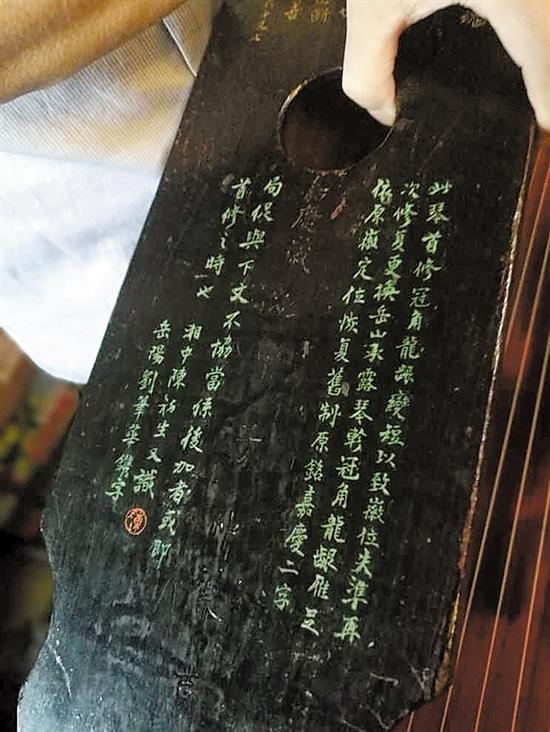 此琴首修冠角龍齦變短以致徽位失準再
次修复更換岳山承露琴軫冠角龍齦雁足
依原徽定位恢复舊制原銘嘉慶二字
局促與下文不協當係後加者或即
首修之時也
湘中陳初生又識
岳陽劉華英鐫字
慶歲